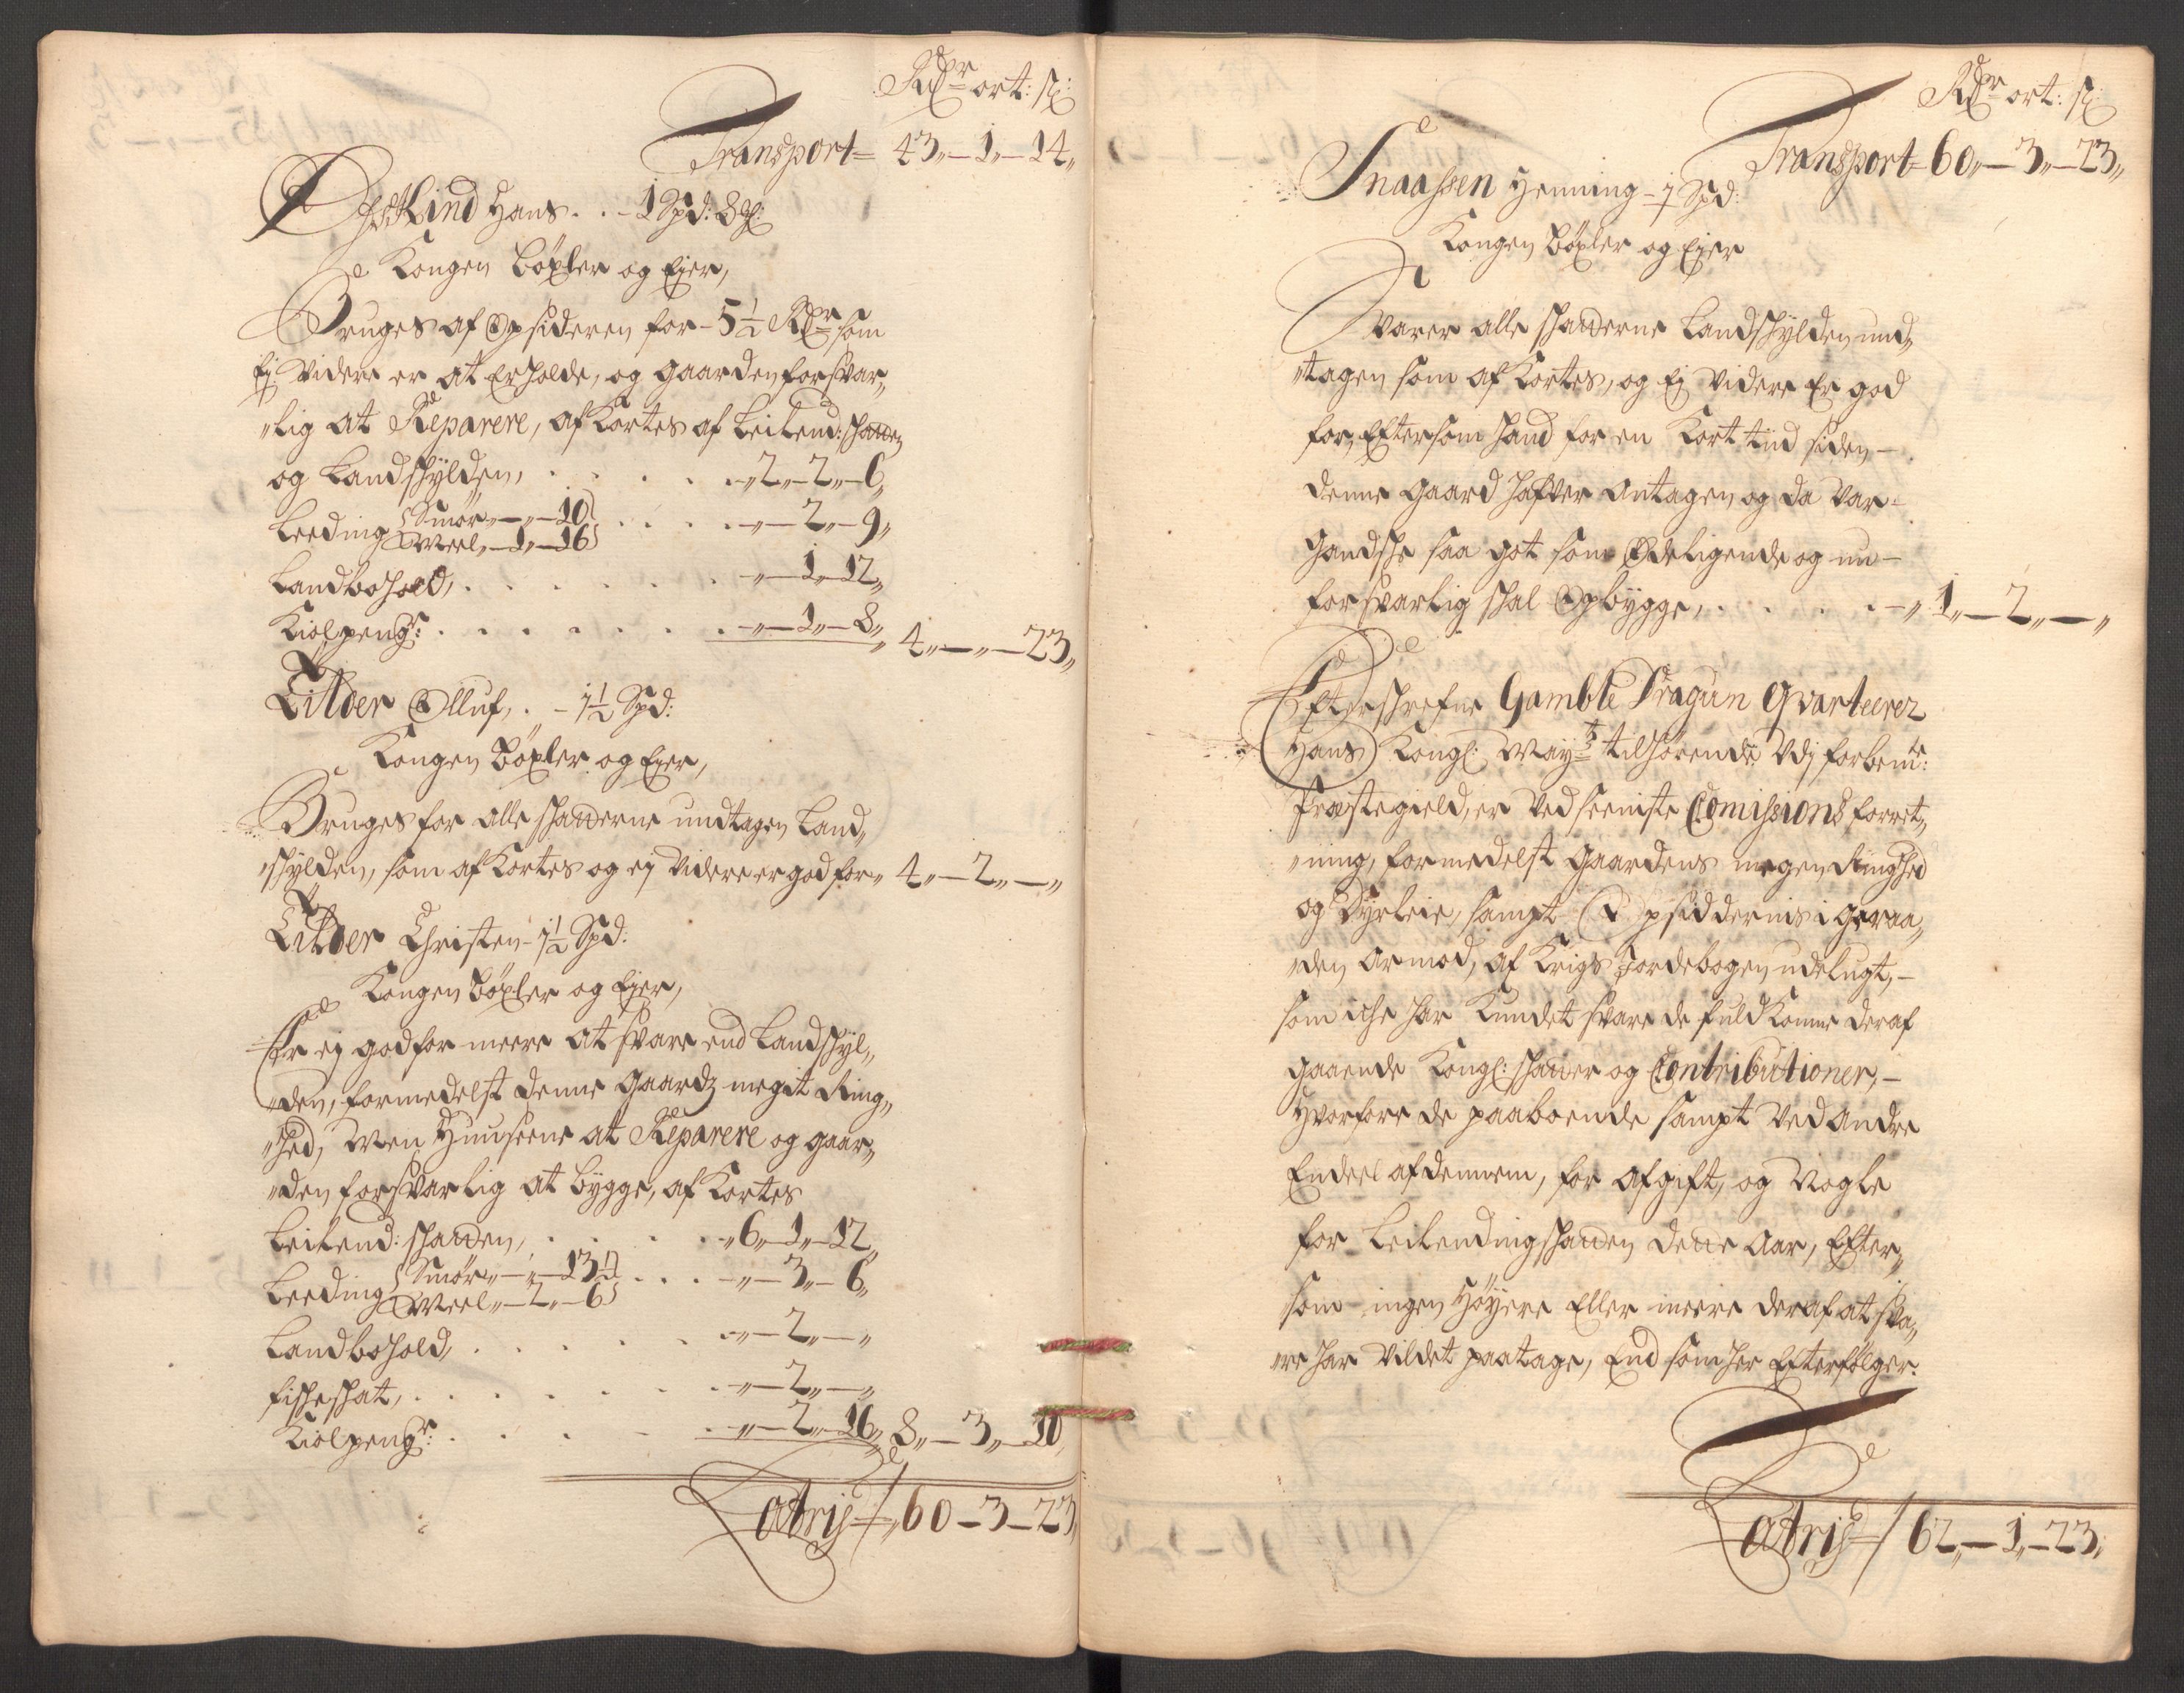 Rdr ort: ß:
Transport= 43,,–1,,–14,,
Østlind Hans . . – 1 Spd: 8 ℔:
Kongen Böxler og Ejer,
Bruges af Opsideren for – 5½ Rdr som
Ej Videre er at Erholde, og gaarden forsvar„
„lig at Reparere, af Kortes af Leilend: skatten
og Landskÿlden, . . . . . „2„–2„–6„
Leeding {Smör „–„–10} . . . . „–2„–9„
{Meel „–1„–16}
Landbohold, . . . . . . . „–1„–12„
Kiölpengr: . . . . . . . „–1„–8„ 4„–„–23„
Lilder Olluf, . – 1½ Spd:
Kongen Böxler og Ejer,
Bruges for alle skatterne undtagen Land„
„skÿlden, som af Kortes og ej Videre er god for „ 4„–2„–„
Lilder Christen – 1½ Spd:
Kongen Böxler og Ejer,
Er ej god for meere at svare end Landskÿl„
„den, formedelst denne Gaardz megit Ring„
„hed, Men Huuseene at Reparere og gaar„
„den forsvarlig at bygge, af Kortes
Leilend: skatten, . . . . . „6„–1„–12„
Leeding {Smör „–„–13½} . . . . „–3„–6„
{Meel „–2„–6}
Landbohold, . . . . . . „–2„–„
fiskeskat, . . . . . . . „–2„–„
Kiölpengr: . . . . . „–2„–16„ 8„–3„–10„
Latris / „60–3–23„
Rdr ort: ß:
Transport= 60„–3„–23„
Snaassen Henning – 1 Spd:
Kongen Böxler og Ejer
Svarer alle skatterne Landskÿlden und„
„tagen som af Kortes, og Ej Videre Er god
for, Eftersom hand for en Kort tiid siden –
denne Gaard hafver Antagen og da Var
Gandske saa got som Ödeligende og nu –
forsvarlig skal Opbÿgge, . . . . . – „ 1„–2„–„
Efterskrefne Gamble Dragun Qvarteerer
Hans Kongl: Mayts tilhörende Udj forbemte:
Præstegield, er Ved seeniste Comissions forret„
„ning, formedelst Gaardens megen Ringhed
og Dyrleie, sampt Opsiddernis i geraa„
„den Armod, af Krigs Jordebogen udelugt, –
som icke har Kundet svare de fuldKomne deraf
gaaende Kongl: skatter og Contributioner, –
Hvorfore de paaboende sampt Ved Andre
Endeel af dennem, for Afgift, og Nogle
for Leilendingskatten dette Aar, Efter„
„som ingen Höÿere Eller meere deraf at sva„
„re har Vildet paatage, End som her Efterfölger.
Latris / 62„–1„–23„